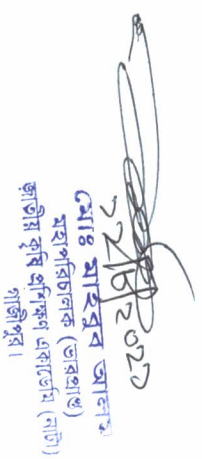 ২২/৬/২০২৩
মোঃ মাহবুব আলম
মহাপরিচালক (ভারপ্রাপ্ত)
জাতীয় কৃষি প্রশিক্ষণ একাডেমি (নাটা)
গাজীপুর।